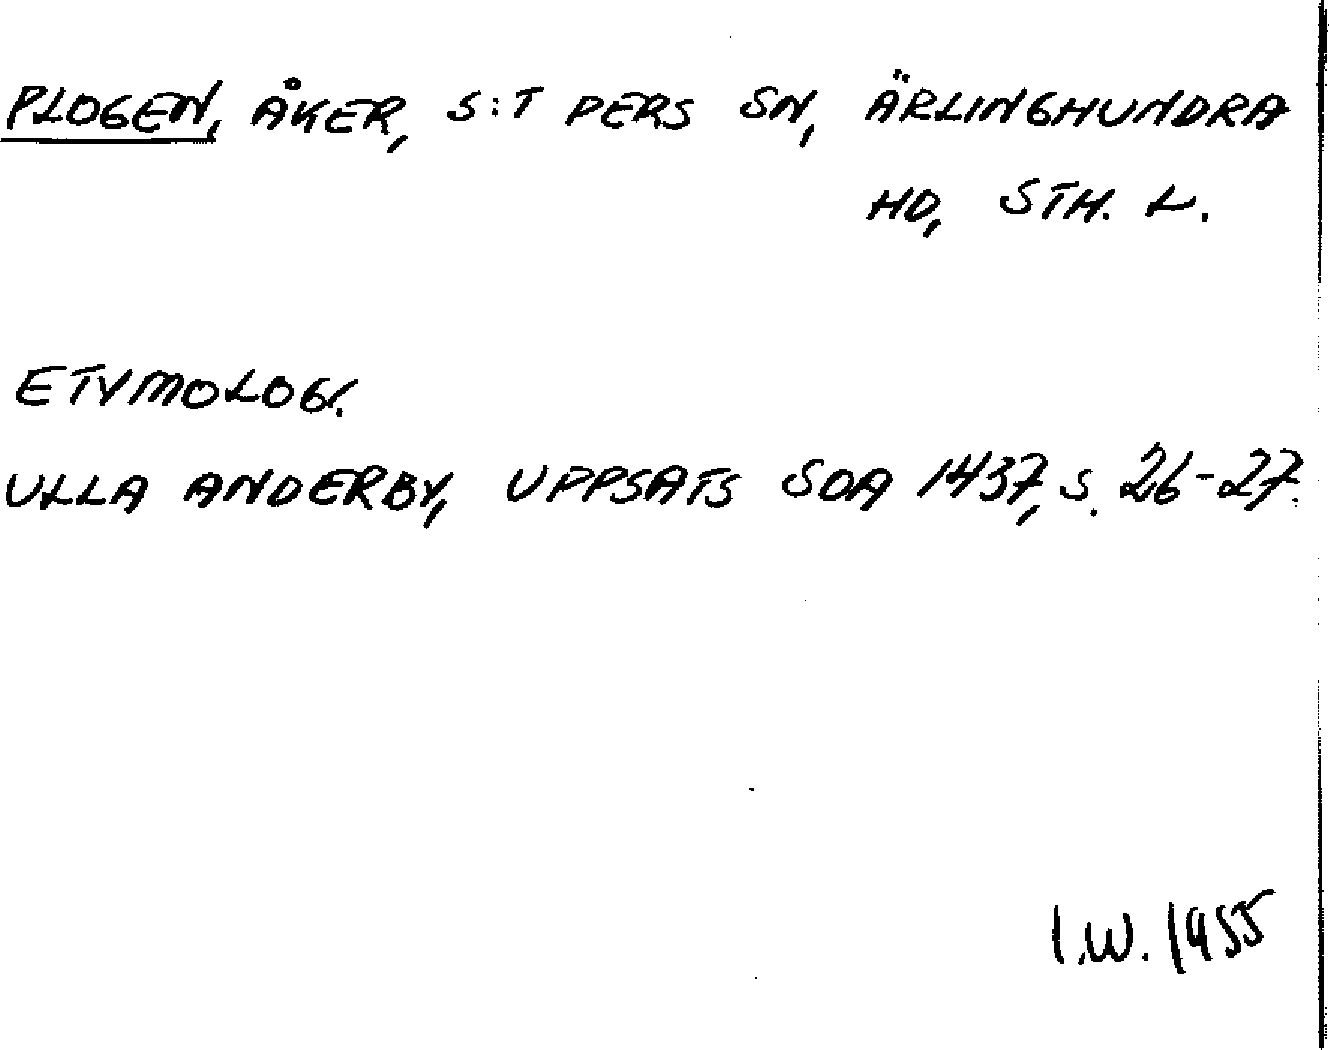 PLOGEN, ÅKER, S:T PERS SN, ÄRLINGHUNDRA
HD, STH. L.
ETYMOLOGI.
ULLA ANDERBY, UPPSATS SOA 1437, S. 26-27.
I.W. 1955